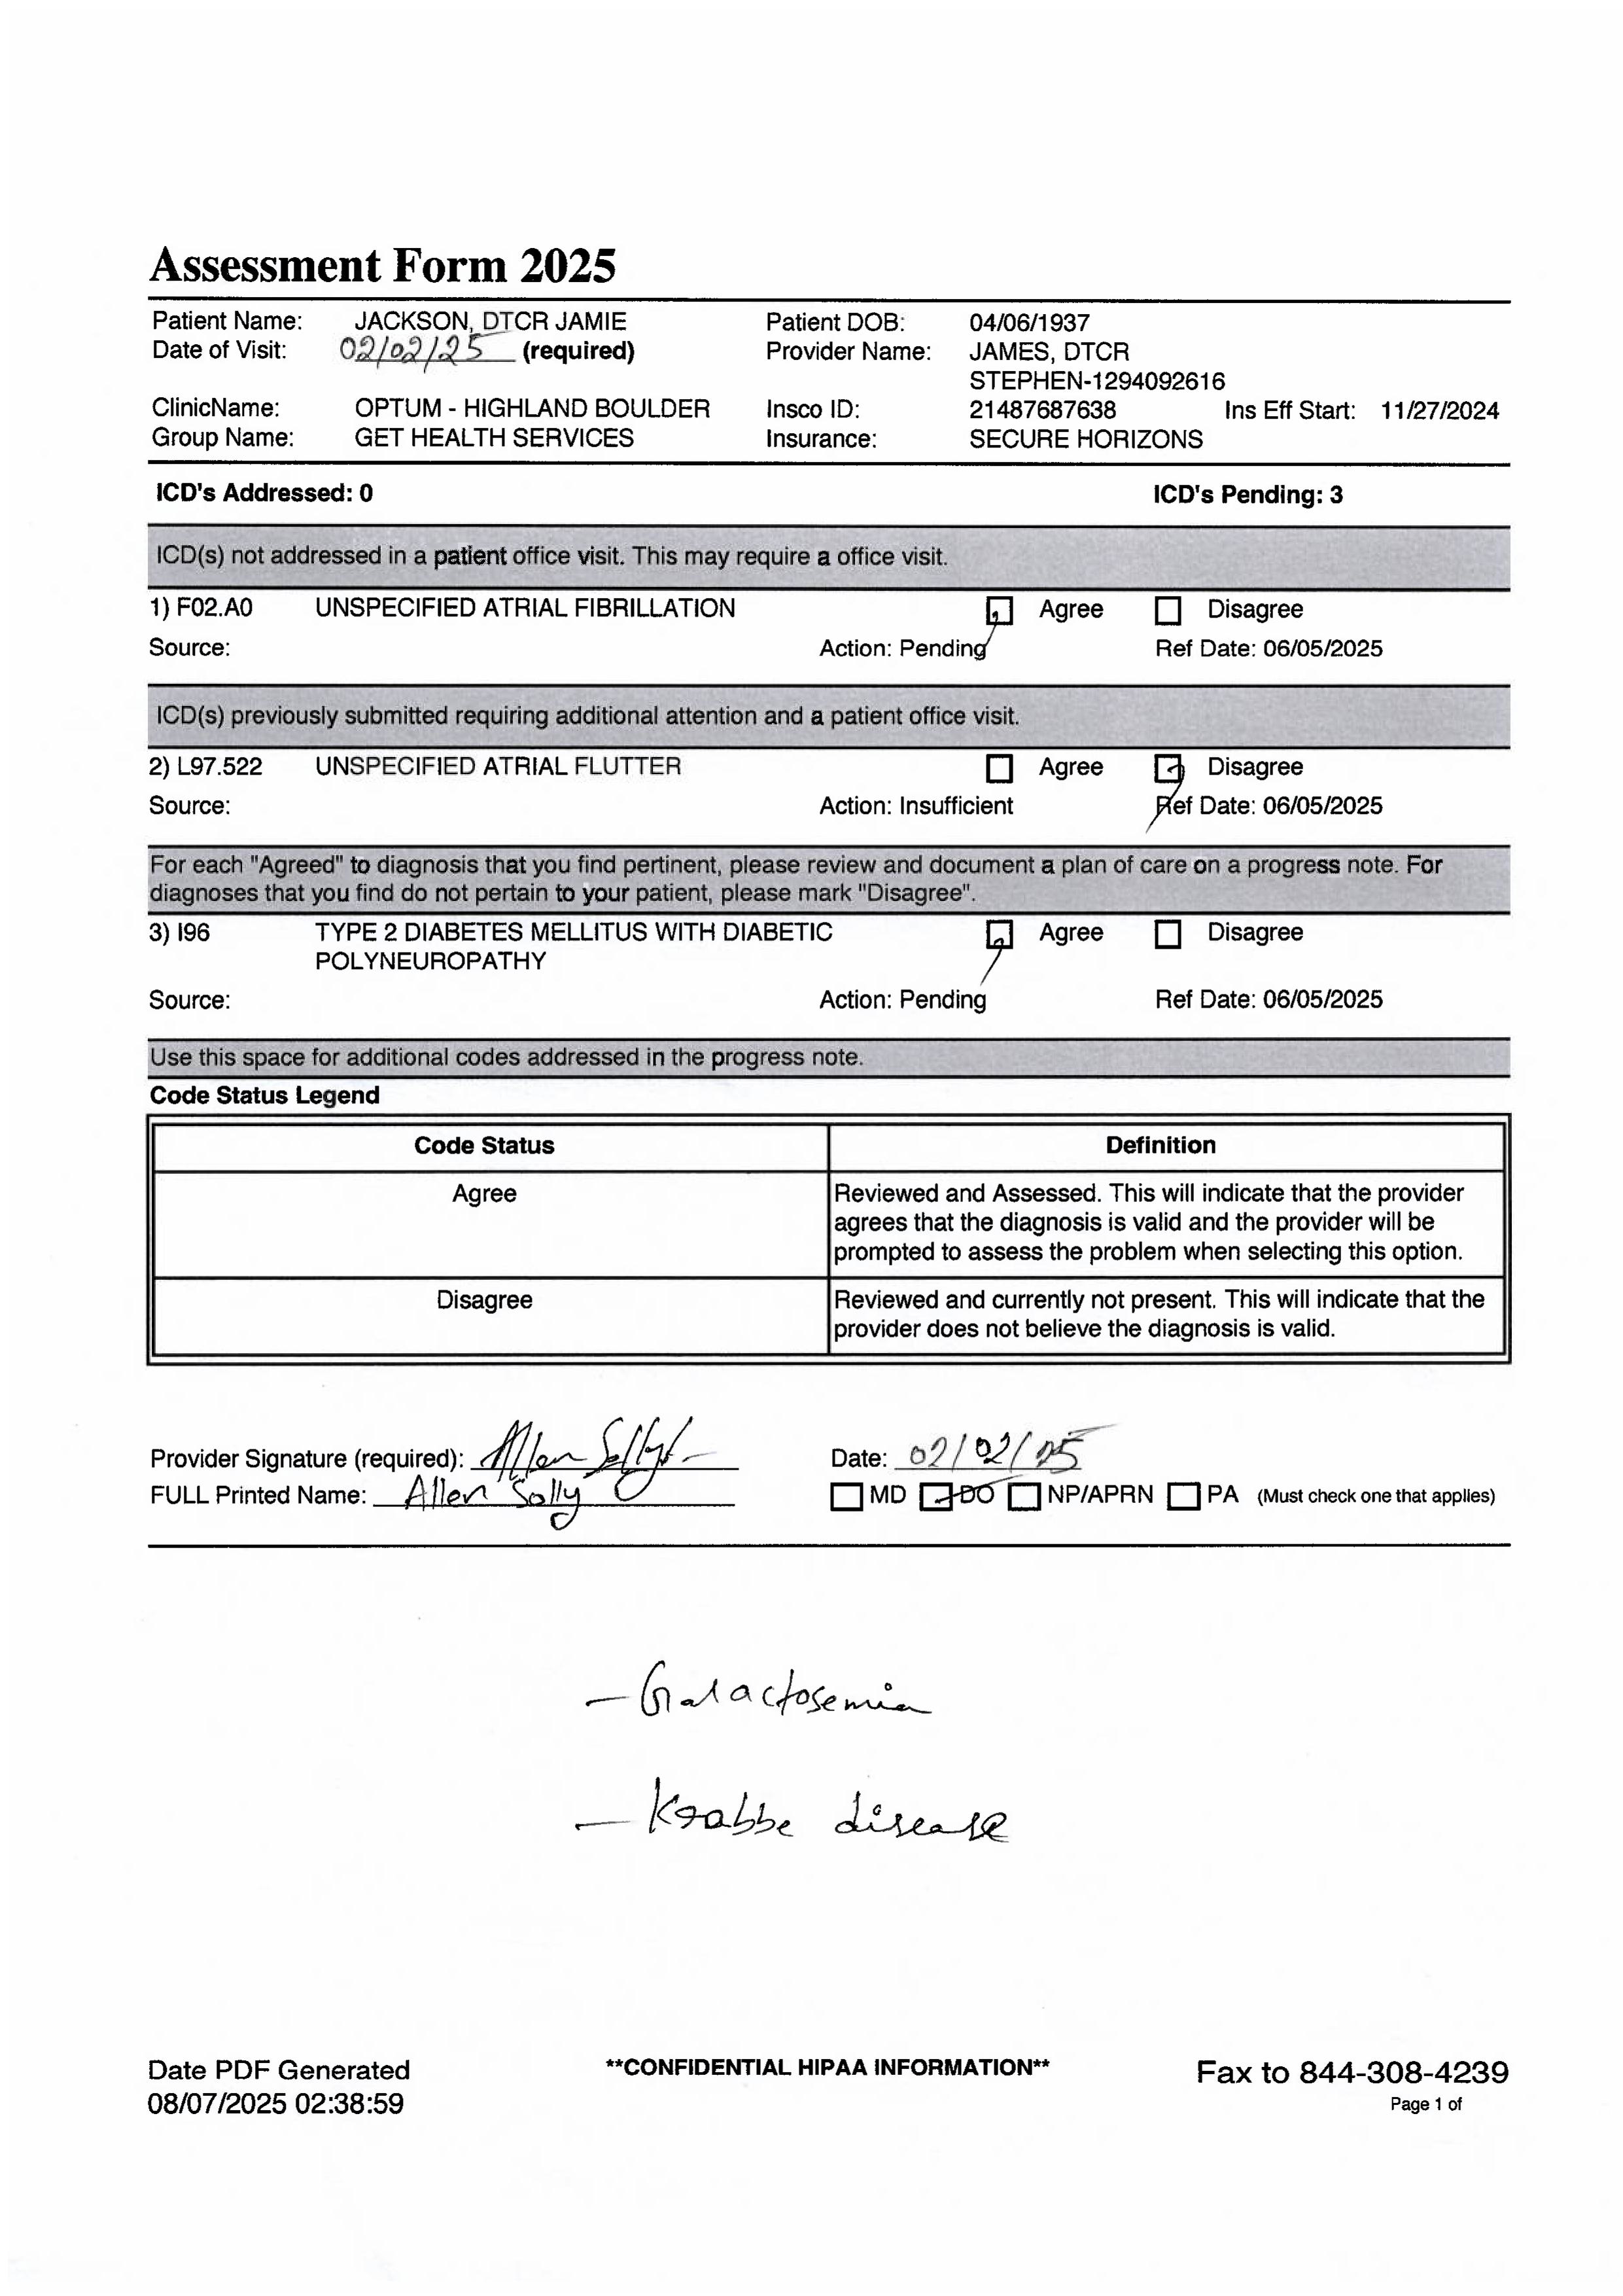 Assessment Form 2025
Patient Name: JACKSON, DTCR JAMIE Patient DOB: 04/06/1937
Date of Visit: 02/02/25 (required) Provider Name: JAMES, DTCR
STEPHEN-1294092616
ClinicName: OPTUM - HIGHLAND BOULDER Insco ID: 21487687638 Ins Eff Start: 11/27/2024
Group Name: GET HEALTH SERVICES Insurance: SECURE HORIZONS
ICD's Addressed: 0 ICD's Pending: 3
ICD(s) not addressed in a patient office visit. This may require a office visit.
1) F02.A0 UNSPECIFIED ATRIAL FIBRILLATION Agree Disagree
Source: Action: Pending Ref Date: 06/05/2025
ICD(s) previously submitted requiring additional attention and a patient office visit.
2) L97.522 UNSPECIFIED ATRIAL FLUTTER Agree Disagree
Source: Action: Insufficient Ref Date: 06/05/2025
For each "Agreed" to diagnosis that you find pertinent, please review and document a plan of care on a progress note. For
diagnoses that you find do not pertain to your patient, please mark "Disagree".
3) I96 TYPE 2 DIABETES MELLITUS WITH DIABETIC Agree Disagree
POLYNEUROPATHY
Source: Action: Pending Ref Date: 06/05/2025
Use this space for additional codes addressed in the progress note.
Code Status Legend
Code Status Definition
Agree Reviewed and Assessed. This will indicate that the provider
agrees that the diagnosis is valid and the provider will be
prompted to assess the problem when selecting this option.
Disagree Reviewed and currently not present. This will indicate that the
provider does not believe the diagnosis is valid.
Provider Signature (required): Allen Solly Date: 02/02/25
FULL Printed Name: Allen Solly MD DO NP/APRN PA (Must check one that applies)
- Galactosemia
- Krabbe disease
Date PDF Generated **CONFIDENTIAL HIPAA INFORMATION** Fax to 844-308-4239
08/07/2025 02:38:59 Page 1 of